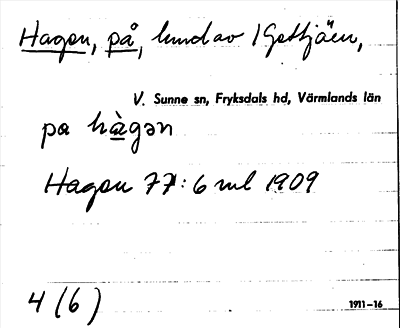 Hagen, på, lund av 1 Gettjäen,
V. Sunne sn, Fryksdals hd, Värmlands län
pa hàgən
Hagen 77:6 ml 1909
4 (6)
1911–16